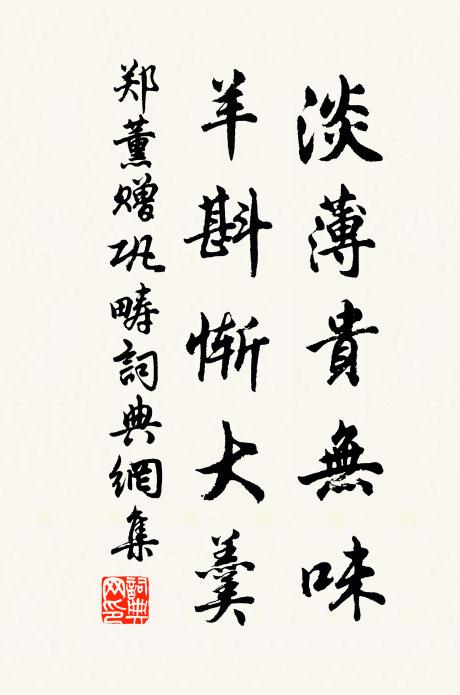 淡薄貴無味
羊斟慚大羹
郑薰赠巩畴詞典網集
詞典网印